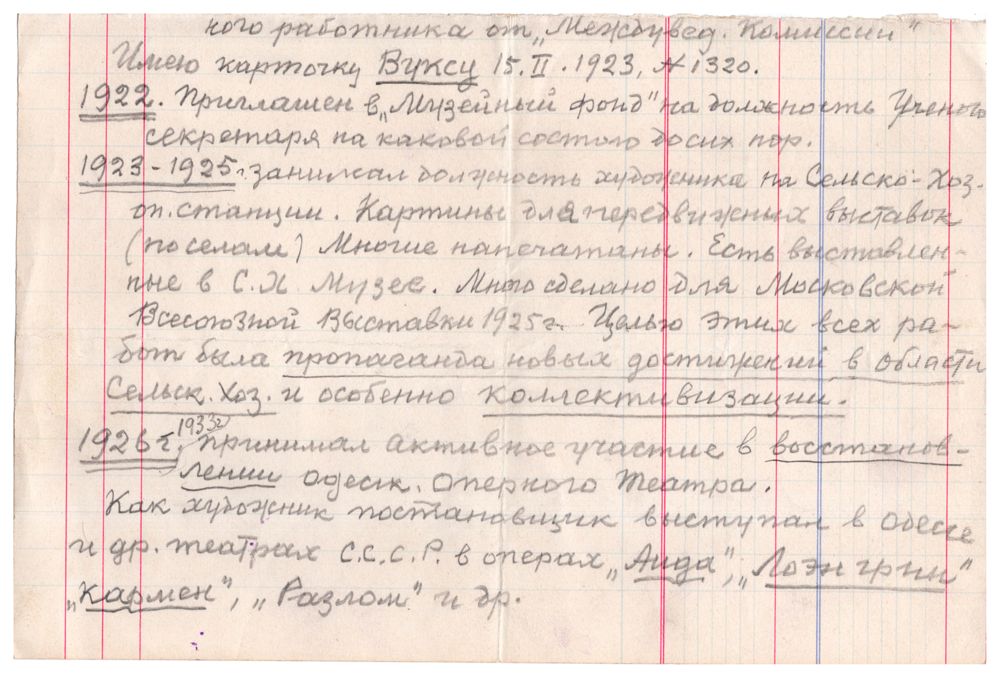 ного работника от „Междувед. Комиссии"
Имею карточку Вуксу 15.II.1923, № 1320.
1922. Приглашен в „Музейный фонд" на должность Ученого
секретаря на каковой состою до сих пор.
1923-1925 г. занимал должность художника на Сельско-Хоз.
оп. станции. Картины для передвижных выставок
(по селам) Многие напечатаны. Есть выставлен-
ные в С.Х Музее. Много сделано для Московской
Всесоюзной Выставки 1925 г. Целью этих всех ра-
бот была пропаганда новых достижений в области
Сельск. Хоз. и особенно коллективизации.
1926 г. 1933 г принимал активное участие в восстанов-
лении одесск. Оперного Театра.
Как художник постановщик выступал в Одессе
и др. театрах С.С.С.Р. в операх „Аида", „Лоэнгрин"
„Кармен", „Разлом" и др.